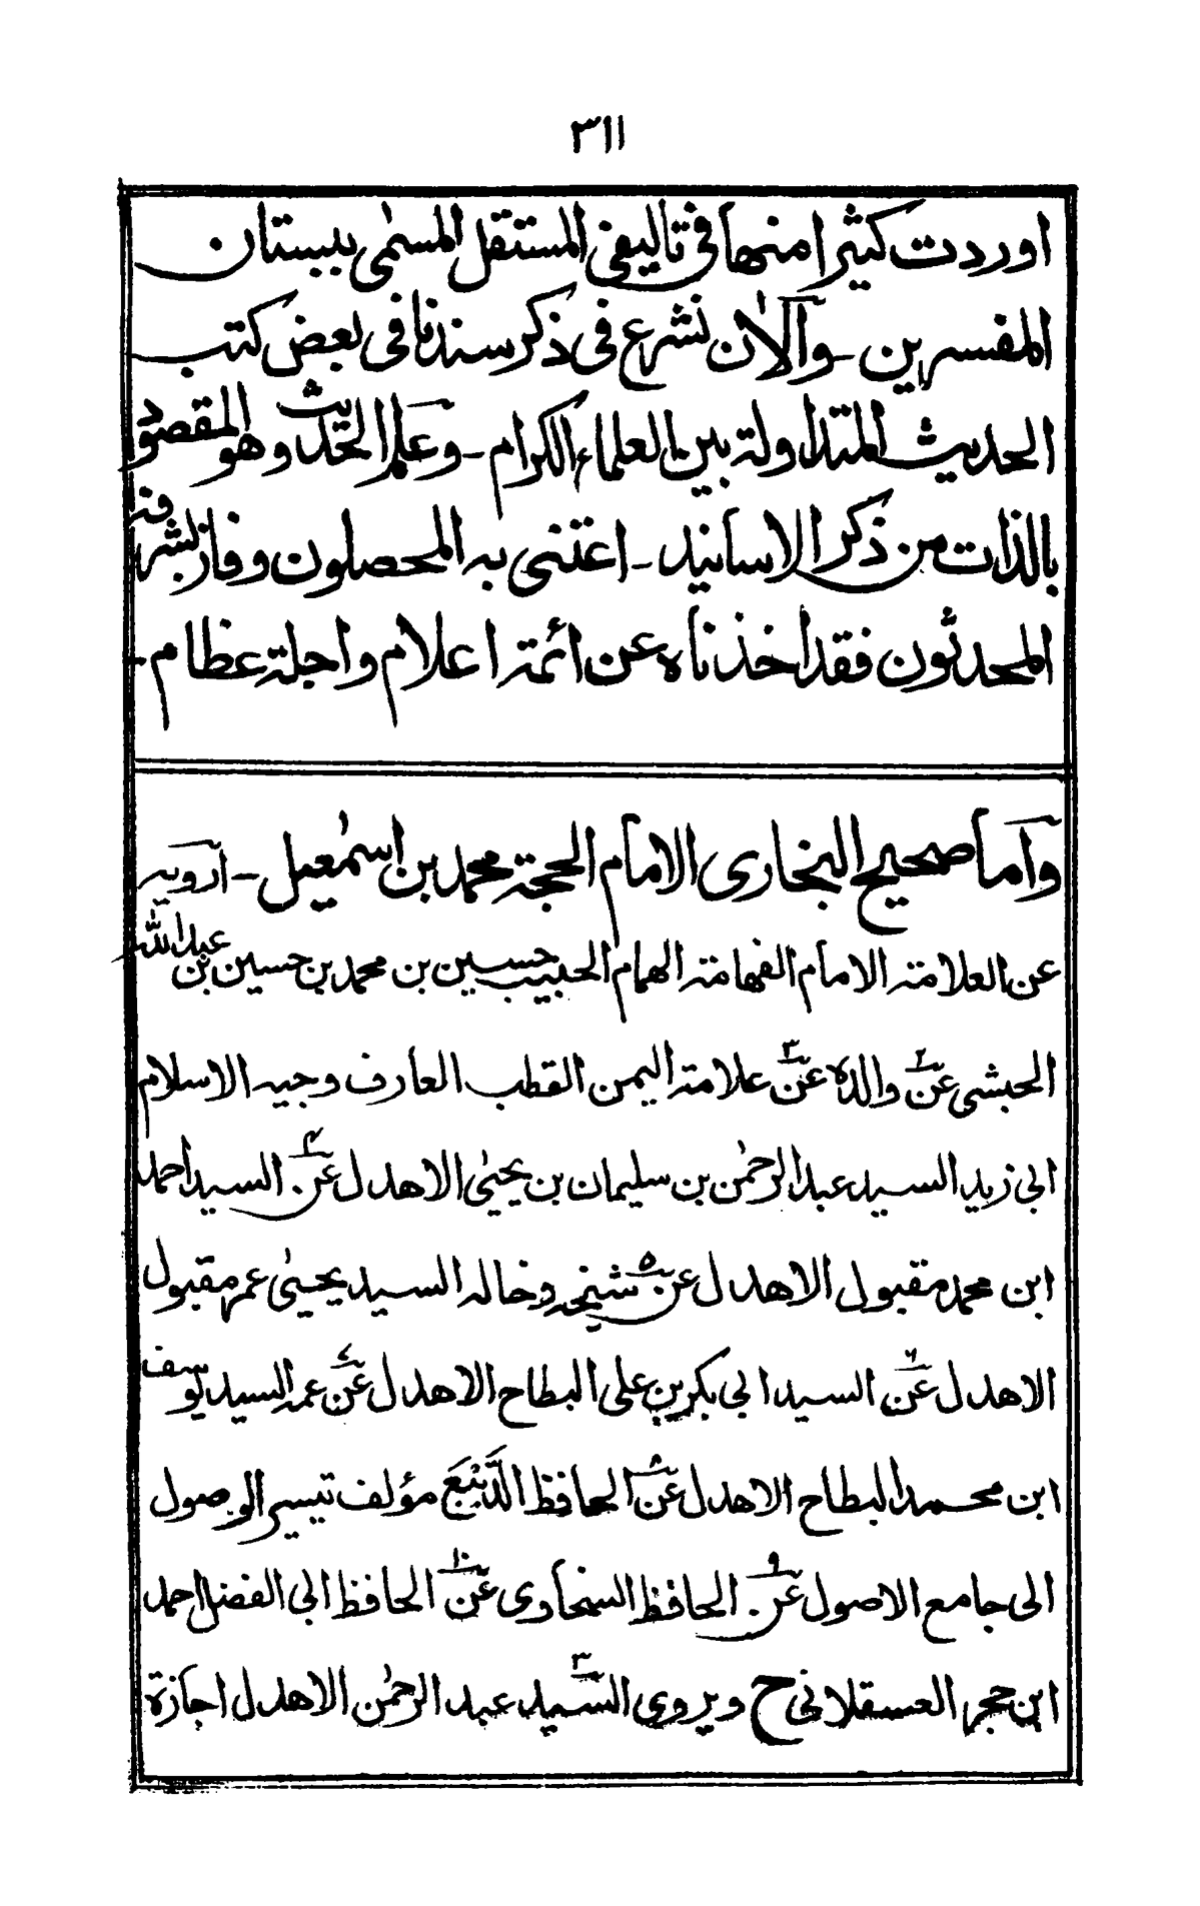 ٣١١
اوردت كثيرا منها فى تاليفى المستقل المسمى ببستان
المفسرين ـ وآلان نشرع فى ذكر سندنا فى بعض كتب
الحديث المتداولة بين العلماء الكرام ـ وعلم الحديث وهو المقصود
بالذات من ذكر الاسانيد ـ اعتنى به المحصلون وفاز بشرفه
المحدثون فقد اخذناه عن ائمة اعلام واجلة عظام ـ
وآما صحيح البخارى الامام الحجة محمد بن اسمٰعيل ـ ارويه
عن العلامة الامام الفهامة الهمام الحبيب حسين بن محمد بن حسين بن عبد الله
الحبشى عن٢ والده عن٣ علامة اليمن القطب العارف وجيه الاسلام
ابى زيد السيد عبد الرحمٰن بن سليمان بن يحيىٰ الاهدل عن٤ السيد احمد
ابن محمد مقبول الاهدل عن٥ شيخه وخاله السيد يحيىٰ عمر مقبول
الاهدل عن٦ السيد ابى بكر بن على البطاح الاهدل عن٧ عمه السيد يوسف
ابن محمد البطاح الاهدل عن٨ الحافظ الدَّيْبَع مؤلف تيسير الوصول
الى جامع الاصول عن٩ الحافظ السخاوى عن١٠ الحافظ ابى الفضل احمد
ابن حجر العسقلانى ح ويروى السيد٣ عبد الرحمٰن الاهدل اجازة